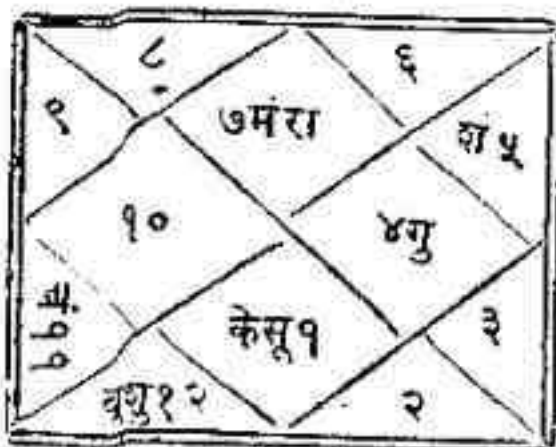 ८
६
९
७मंरा
शं ५
१०
४गु
चं ११
केसू १
३
वृशु १२
२